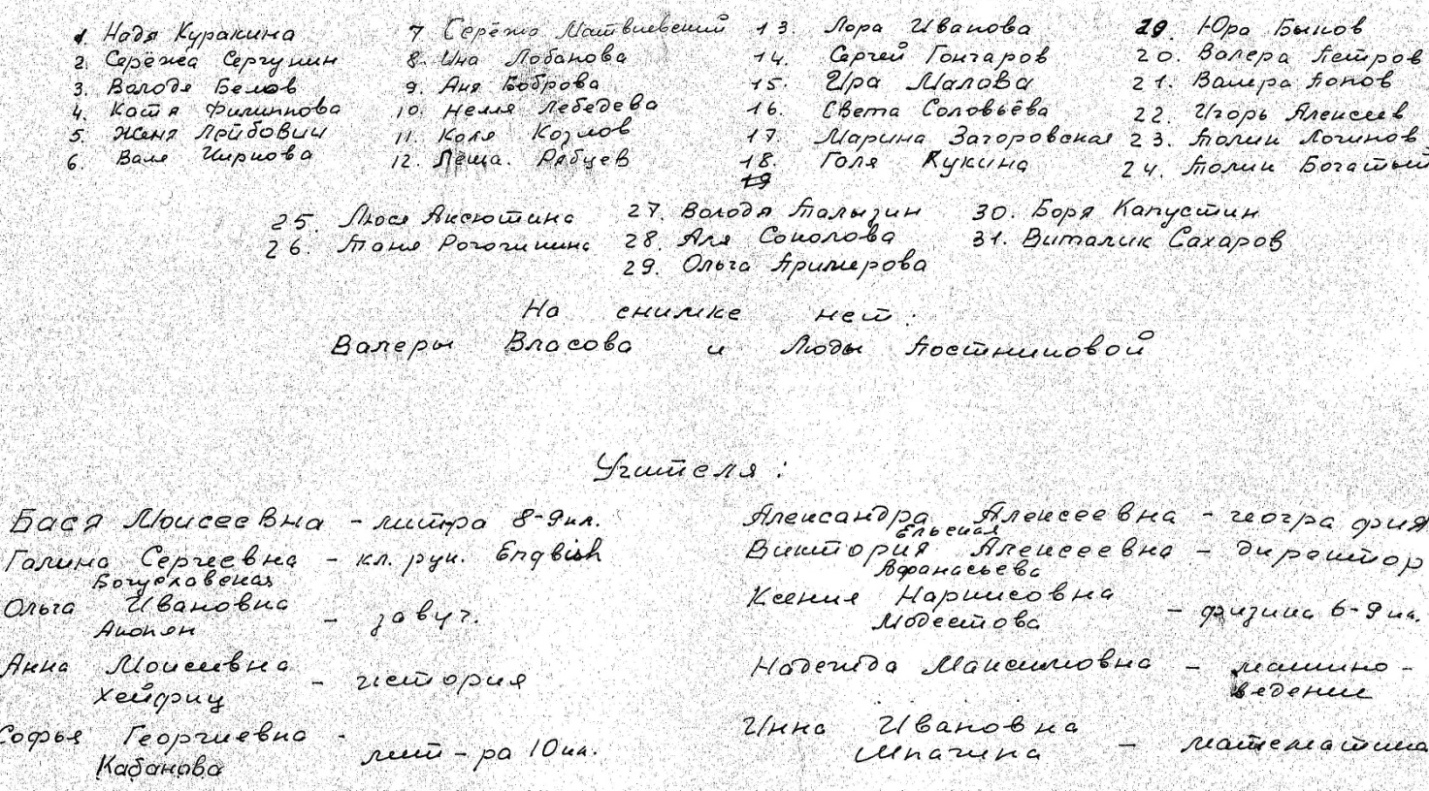 1. Надя Куракина
2. Серёжа Сергунин
3. Володя Белов
4. Катя Филиппова
5. Женя Лейбович
6. Валя Чиркова
7 Серёжа Матвиевский
8. Ина Лобанова
9. Аня Боброва
10. Неля Лебедева
11. Коля Козлов
12. Лёша. Рябцев
13. Лора Иванова
14. Сергей Гончаров
15. Ира Малова
16. Света Соловьёва
17. Марина Загоровская
18. Галя Кукина
19
19. Юра Быков
20. Валера Петров
21. Валера Попов
22. Игорь Алексеев
23. Толик Логинов
24. Толик Богатый
25. Люся Аксютина
26. Таня Рогочинина
27. Володя Талызин
28. Аля Соколова
29. Ольга Примерова
30. Боря Капустин
31. Виталик Сахаров
На снимке нет:
Валеры Власова и Люды Постниковой
Учителя:
Бася Моисеевна - литра 8-9кл.
Галина Сергеевна - кл. рук. English
Богуславская
Ольга Ивановна - завуч.
Акопян
Анна Моисеевна - история
Хейфиц
Софья Георгиевна - лит-ра 10кл.
Кабанова
Александра Алексеевна - география
Ельская
Виктория Алексеевна - директор
Афанасьева
Ксения Наркисовна - физика 6-9кл.
Модестова
Надежда Максимовна - машино-
ведение
Инна Ивановна - математика
Шпагина